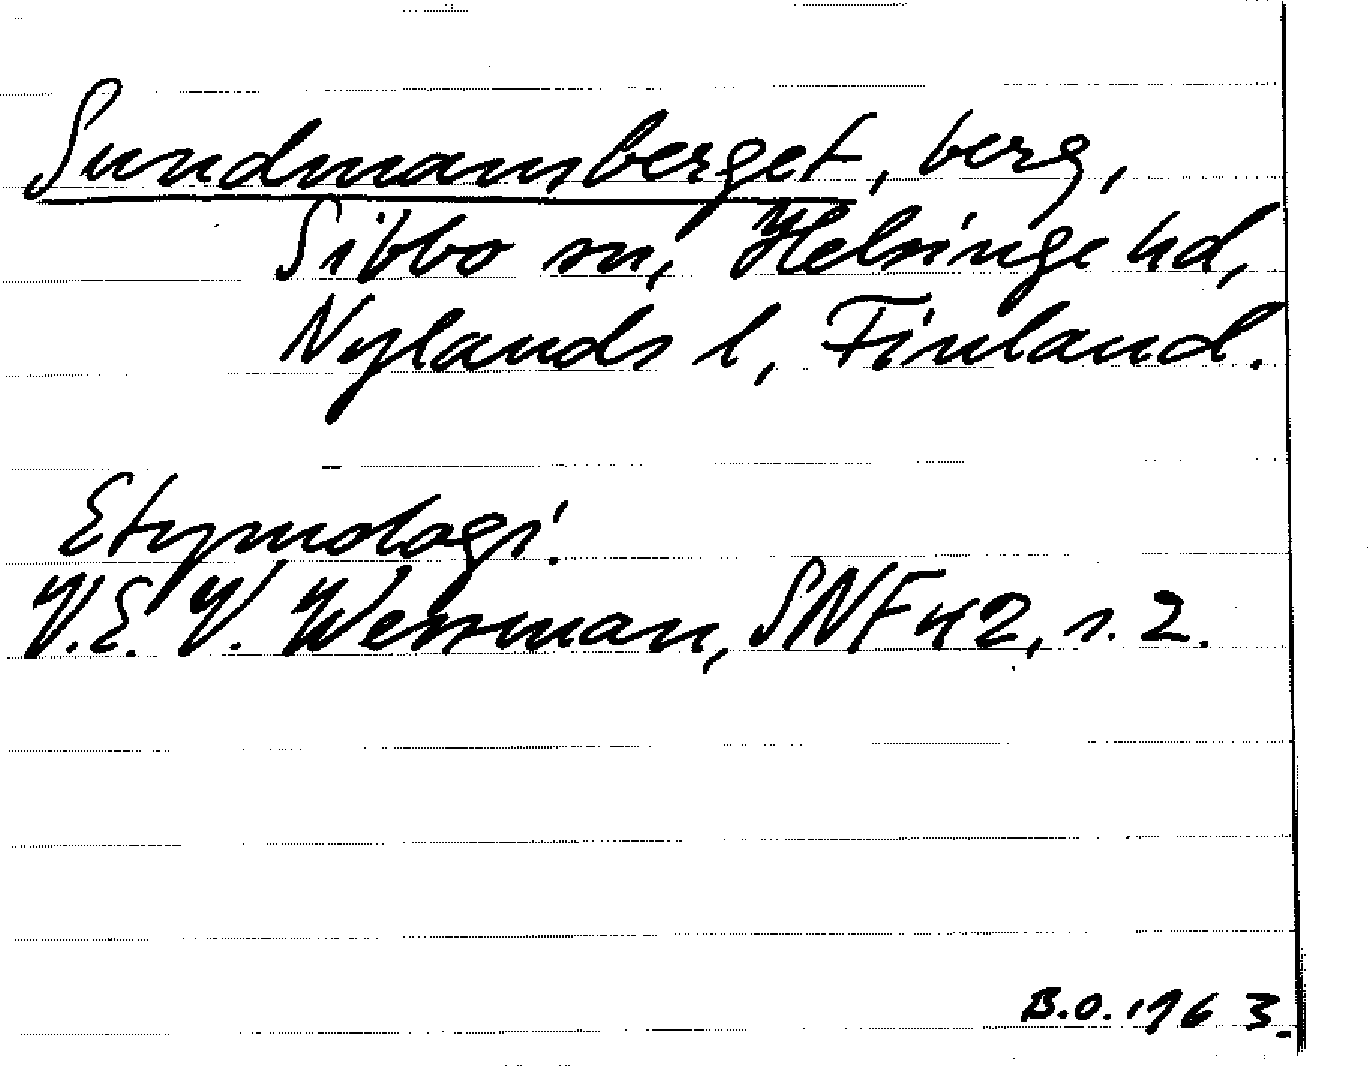 Sundmansberget, berg,
Sibbo sn, Helsinge hd,
Nylands l, Finland.
Etymologi.
V.E.V. Wessman, SNF 42, s. 2.
B.O. 1963.